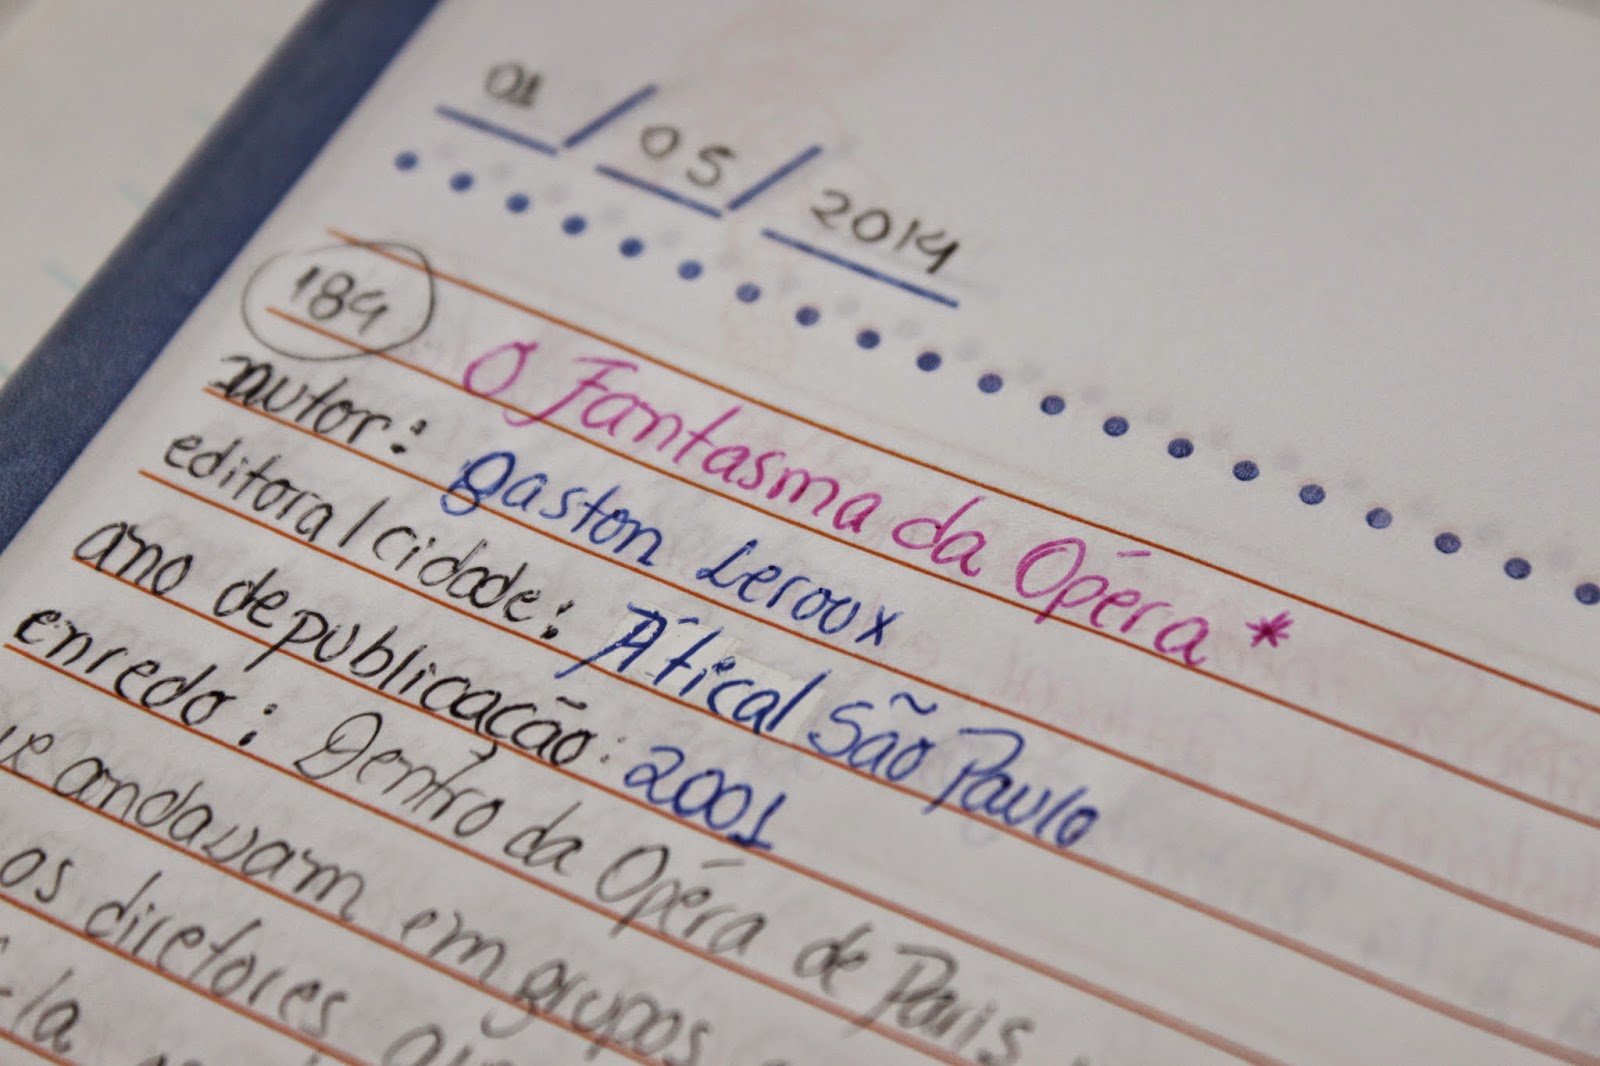 01/05/2014
184
O Fantasma da Ópera *
autor: gaston Leroux
editora/cidade: Ática/São Paulo
ano de publicação: 2001
enredo: Dentro da Ópera de Paris
andavam em grupos
os diretores